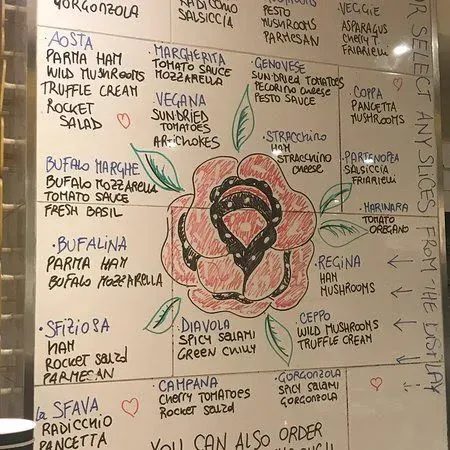 GORGONZOLA
RADICCHIO
SALSICCIA
MUSHROOMS
PESTO
MUSHROOMS
PARMESAN
VEGGIE
ASPARAGUS
CHERRY T.
FRIARIELLI
AOSTA
PARMA HAM
WILD MUSHROOMS
TRUFFLE CREAM
ROCKET
SALAD
MARGHERITA
TOMATO SAUCE
MOZZARELLA
VEGANA
SUNDRIED
TOMATOES
ARTICHOKES
GENOVESE
SUNDRIED TOMATOES
PECORINO CHEESE
PESTO SAUCE
STRACCHINO
HAM
STRACCHINO
CHEESE
COPPA
PANCETTA
MUSHROOMS
PARTENOPEA
SALSICCIA
FRIARIELLI
MARINARA
TOMATO
OREGANO
BUFALO MARGHE
BUFALO MOZZARELLA
TOMATO SAUCE
FRESH BASIL
BUFALINA
PARMA HAM
BUFALO MOZZARELLA
REGINA
HAM
MUSHROOMS
SFIZIOSA
HAM
ROCKET SALAD
PARMESAN
DIAVOLA
SPICY SALAMI
GREEN CHILLY
CEPPO
WILD MUSHROOMS
TRUFFLE CREAM
LA SFAVA
RADICCHIO
PANCETTA
CAMPANA
CHERRY TOMATOES
ROCKET SALAD
GORGONZOLA
SPICY SALAMI
GORGONZOLA
YOU CAN ALSO ORDER
OR SELECT ANY SLICES FROM THE DISPLAY